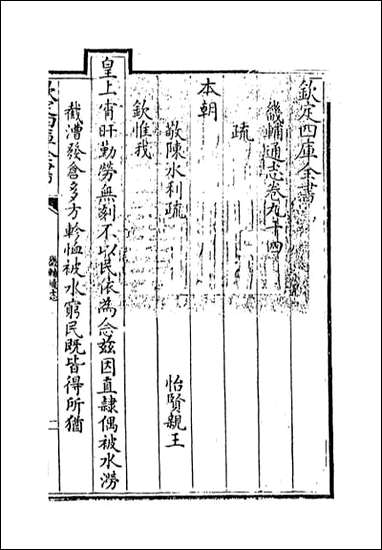 欽定四庫全書
畿輔通志卷九十四
疏
本朝
敬陳水利疏
怡賢親王
欽惟我
皇上宵旰勤勞無刻不以民依為念茲因直隸偶被水澇
截漕發倉多方軫恤被水窮民既皆得所猶
欽定四庫全書
畿輔通志